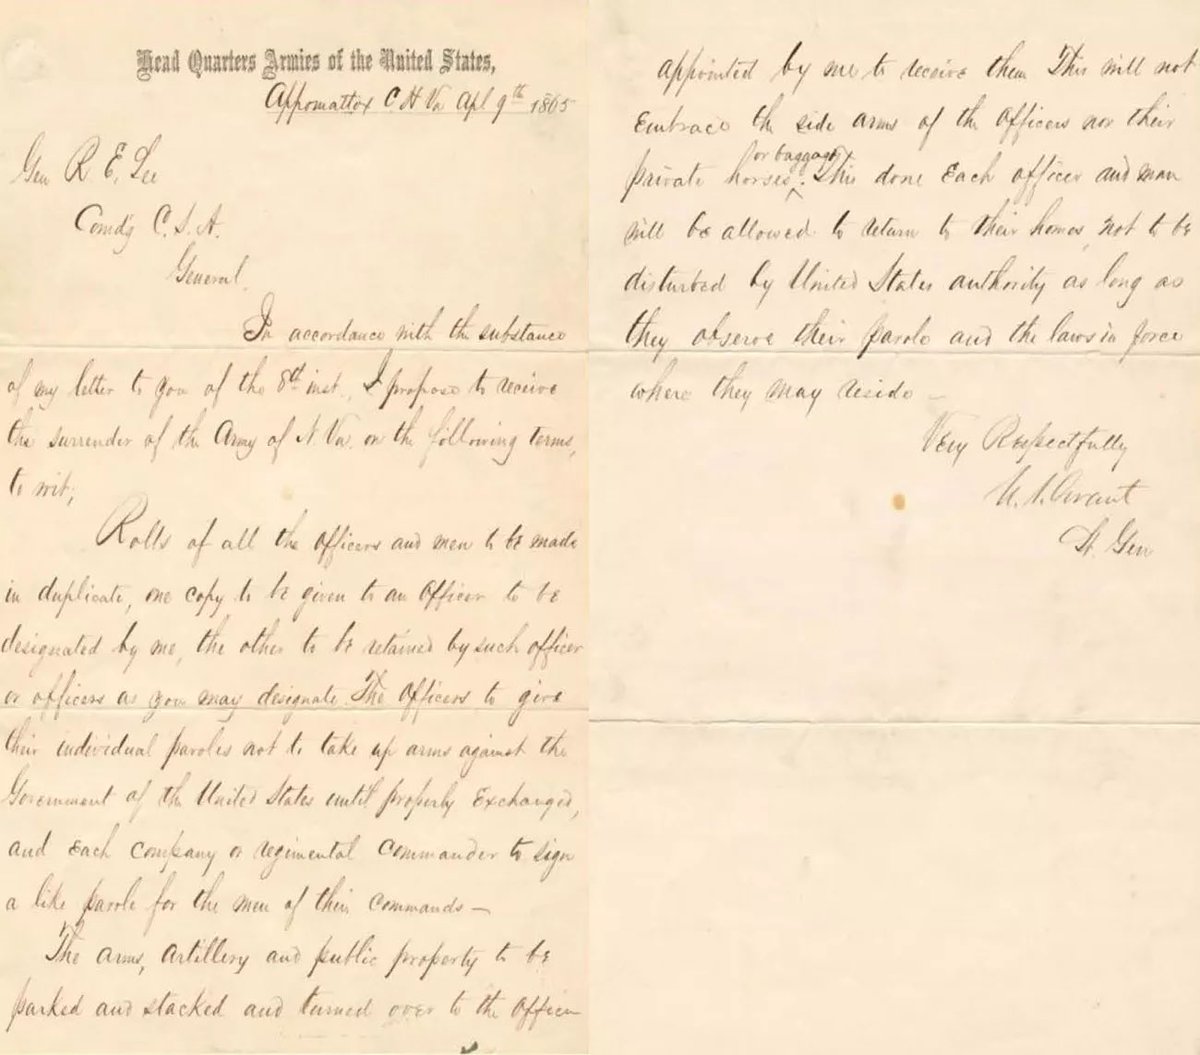 Head Quarters Armies of the United States,
Appomattox C. H. Va. Apl 9th 1865
Gen R. E. Lee
Comd'g C. S. A.
General,
In accordance with the substance
of my letter to you of the 8th inst., I propose to receive
the surrender of the Army of N. Va. on the following terms,
to wit;
Rolls of all the officers and men to be made
in duplicate, one copy to be given to an officer to be
designated by me, the other to be retained by such officer
or officers as you may designate. The officers to give
their individual paroles not to take up arms against the
Government of the United States until properly Exchanged,
and Each company or regimental commander to sign
a like parole for the men of their commands —
The arms, artillery and public property to be
parked and stacked and turned over to the officer
appointed by me to receive them This will not
Embrace the side arms of the officers nor their
private horses or baggage. This done Each officer and man
will be allowed to return to their homes, not to be
disturbed by United States authority as long as
they observe their parole and the laws in force
where they may reside —
Very Respectfully
U. S. Grant
Lt. Gen